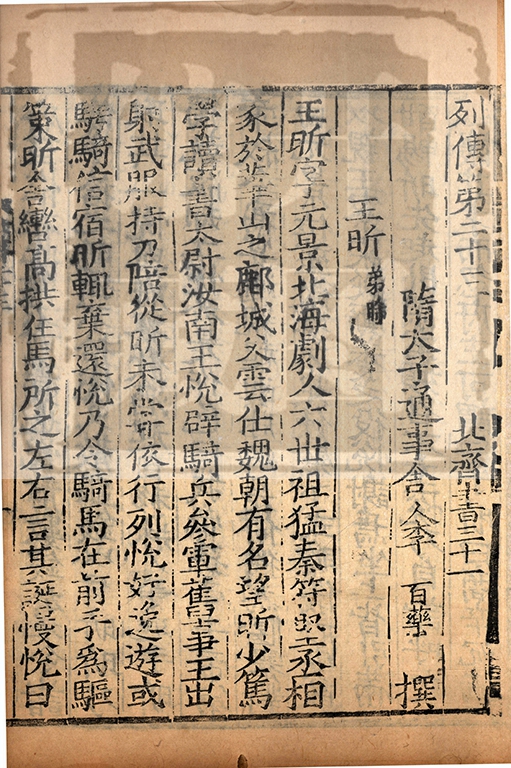 列傳第二十三　北齊書三十一
隋太子通事舍人李　百藥　撰
王昕 弟晞
王昕字元景北海劇人六世祖猛秦苻堅丞相
家於華山之鄜城父雲仕魏朝有名望昕少篤
學讀書太尉汝南王悅辟騎兵叅軍舊事王出
射武服持刀陪從昕未嘗依行列悅好逸遊或
馳騎信宿昕輒棄還悅乃令騎馬在前手為驅
策昕舍轡高拱任馬所之左右言其誕慢悅曰